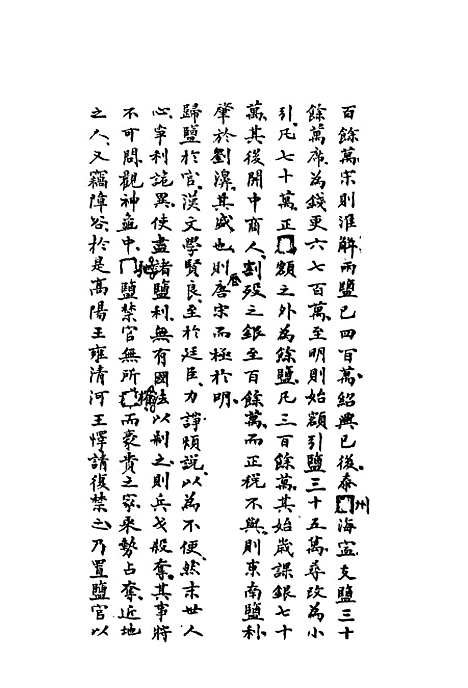 百餘萬宋則淮解兩鹽已四百萬紹興已後泰州海寍支鹽三十
餘萬席為錢更六七百萬至明則始額引鹽三十五萬尋改為小
引凡七十萬正額之外為餘鹽凡三百餘萬其始歲課銀七十
萬其後開中商人割歿之銀至百餘萬而正稅不與則東南鹽利
肇於劉濞其盛也則唐宋而極於明
歸鹽於官漢文學賢良至於廷臣力諍煩說以為不便然末世人
心牢利詭異使盡諸鹽利無有國法以制之則兵戈殺奪其事將
不可問觀神龜中弛鹽禁官無所而豪貴之家乘勢占奪近地
之人又竊障谷於是高陽王雍清河王懌請復禁之乃置鹽官以